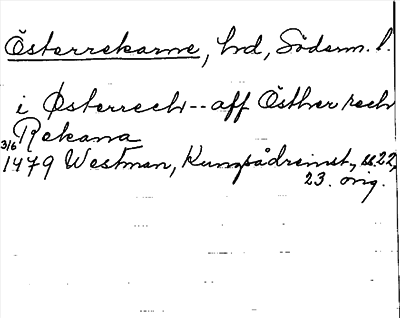 Österrekarne, hd, Söderm. l.
i Østerrech -- aff Östher rech
Rekarna
3/6 1479 Westman, Kungsådreinst, s. 22,
23. orig.